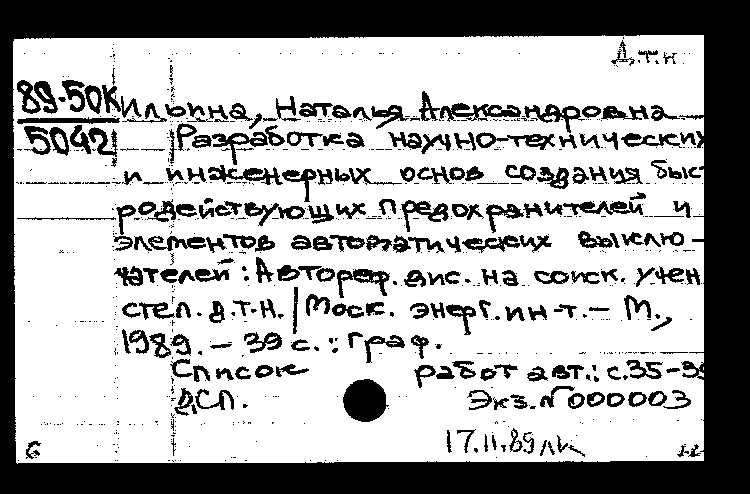 Д.т.н
89-50К
5042
Ильина, Наталья Александровна
Разработка научно-технических
и инженерных основ создания быст
родействующих предохранителей и
элементов автоматических выклю-
чателей: Автореф. дис. на соиск. учен
степ. д.т.н. / Моск. энерг. ин-т. – М.,
1989. – 39 с.: граф.
Список работ авт.: с. 35-39
ДСП. Экз. N 000003
17.11.89 лк
6